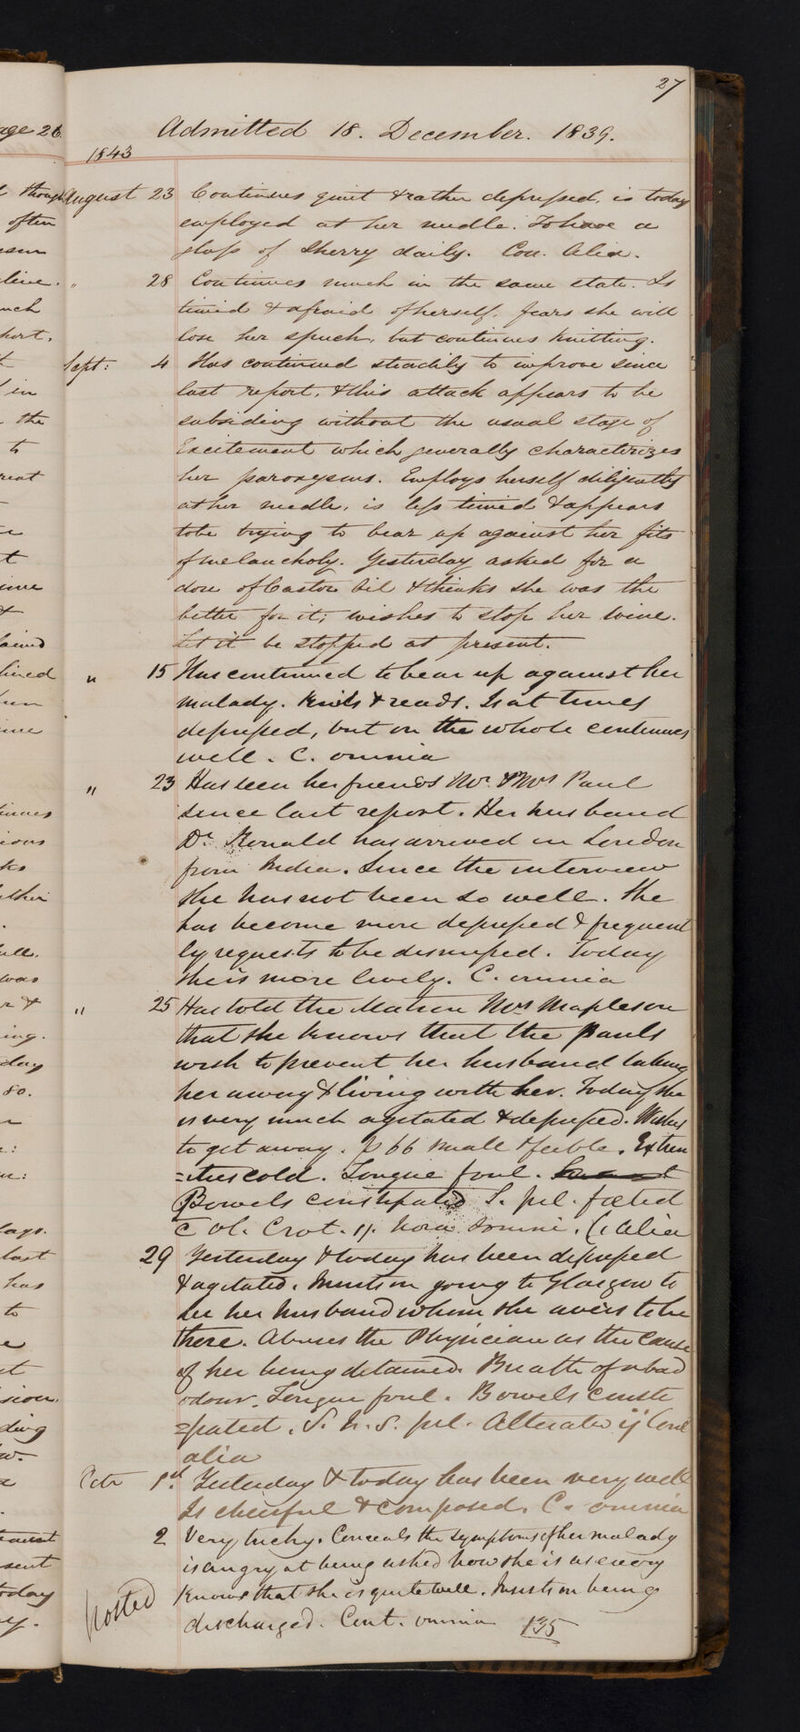 27
Admitted 18. December. 1839.
1843
August 23 Continues quiet & rather depressed, is today
employed at her needle. To have a
glass of Sherry daily. Con. Alia.
" 28 Continues much in the same state. Is
timid & afraid of herself, fears she will
lose her speech, but continues knitting.
Sept: 4 Has continued steadily to improve since
last report, & this attack appears to be
subsiding without the usual stage of
Excitement which generally characterizes
her paroxysms. Employs herself diligently
at her needle, is less timid & appears
to be trying to bear up against her fits
of melancholy. Yesterday asked for a
dose of Castor Oil & thinks she was the
better for it; wishes to stop her wine.
Let it be stopped at present.
" 15 Has continued to bear up against her
malady. Knits & reads. Is at times
depressed, but on the whole continues
well. C. omnia
" 23 Has seen her friends Mr. & Mrs Paul
since last report. Her husband
Dr. Ronald has arrived in London
from India. Since the interview
she has not been so well. She
has become more depressed & frequent
ly requests to be dismissed. Today
she is more lively. C. omnia
" 25 Has told the Matron Mrs Mapleson
that she knows that the Pauls
wish to prevent her husband taking
her away & living with her. Today she
is very much agitated & depressed. Wishes
to get away. P 66 small & feeble. Extrem
=ities cold. Tongue foul.
Bowels constipated S. pil. foetid
c Ol. Crot. ij. hora somni. C. alia
29 Yesterday & today has been depressed
& agitated. Insists on going to Glasgow to
see her husband whom she avers to be
there. Abuses the Physician as the cause
of her being detained. Breath of a bad
odour. Tongue foul. Bowels consti
=pated. S. h. s. pil. Alterativ ij Cont
alia
Octr 1st Yesterday & today has been very well
Is cheerful & composed. C. omnia
2 Very tuchy. Conceals the symptoms of her malady
is angry at being asked how she is as every
knows that she is quite well. Insists on being
discharged. Cont. omnia 135
posted